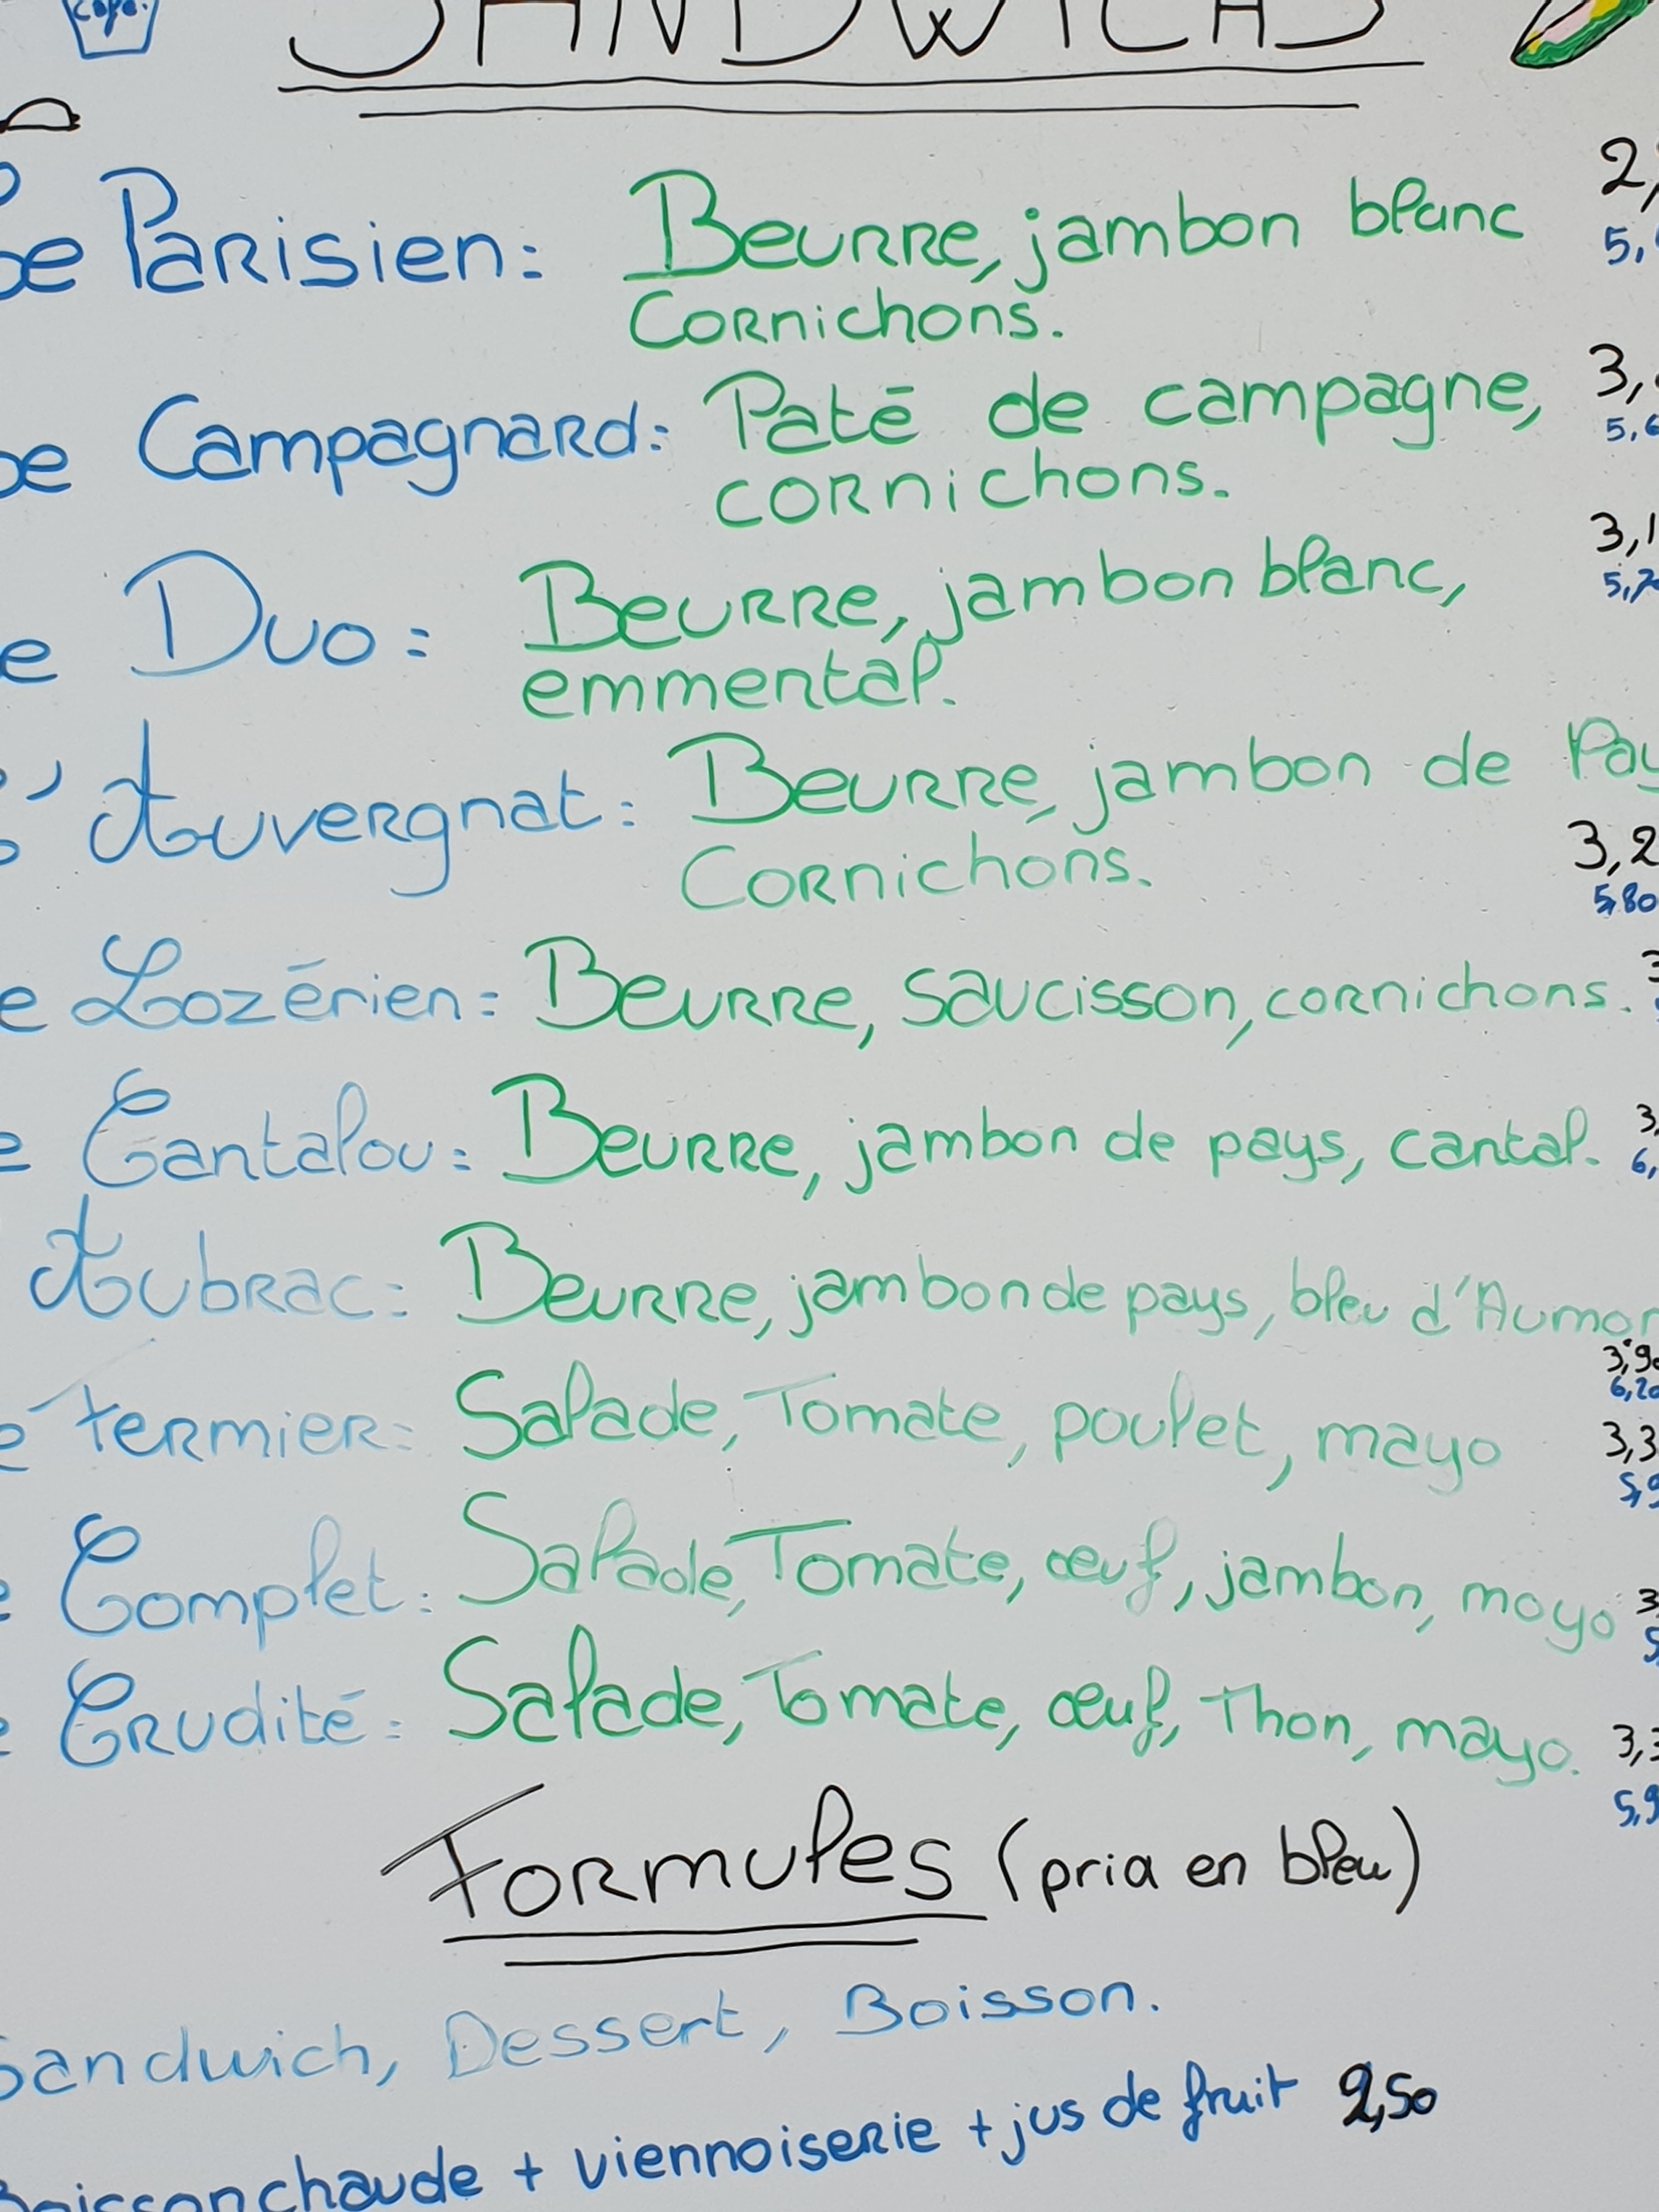 SANDWICHS
Le Parisien: Beurre, jambon blanc 2,
Cornichons. 5,
Le Campagnard: Paté de campagne, 3,
cornichons. 5,6
Le Duo: Beurre, jambon blanc, 3,1
emmental. 5,70
L'Auvergnat: Beurre, jambon de Pay
Cornichons. 3,2
5,80
Le Lozérien: Beurre, saucisson, cornichons. 3
Le Cantalou: Beurre, jambon de pays, cantal. 3,
6,
Aubrac: Beurre, jambon de pays, bleu d'Aumon
3,90
6,20
Le Fermier: Salade, Tomate, poulet, mayo 3,3
5,9
Le Complet: Salade, Tomate, œuf, jambon, mayo 3,
5
Le Crudité: Salade, Tomate, œuf, Thon, mayo. 3,3
5,9
Formules (prix en bleu)
Sandwich, Dessert, Boisson.
Boisson chaude + viennoiserie + jus de fruit 2,50